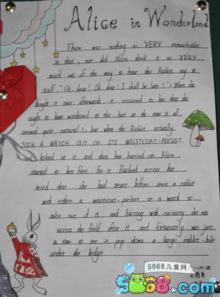 Alice in Wonderland
There was nothing so VERY remarkable
in that; nor did Alice think it so VERY
much out of the way to hear the Rabbit say to
itself, "Oh dear! Oh dear! I shall be late!" When she
thought it over afterwards, it occurred to her that she
ought to have wondered at this, but at the time it all
seemed quite natural; but when the Rabbit actually
TOOK A WATCH OUT OF ITS WAISTCOAT-POCKET,
looked at it, and then hurried on, Alice
started to her feet, for it flashed across her
mind that she had never before seen a rabbit
with either a waistcoat-pocket, or a watch to
take out of it, and burning with curiosity, she ran
across the field after it, and fortunately was just
in time to see it pop down a large rabbit-hole
under the hedge.
5068儿童网
5068.com